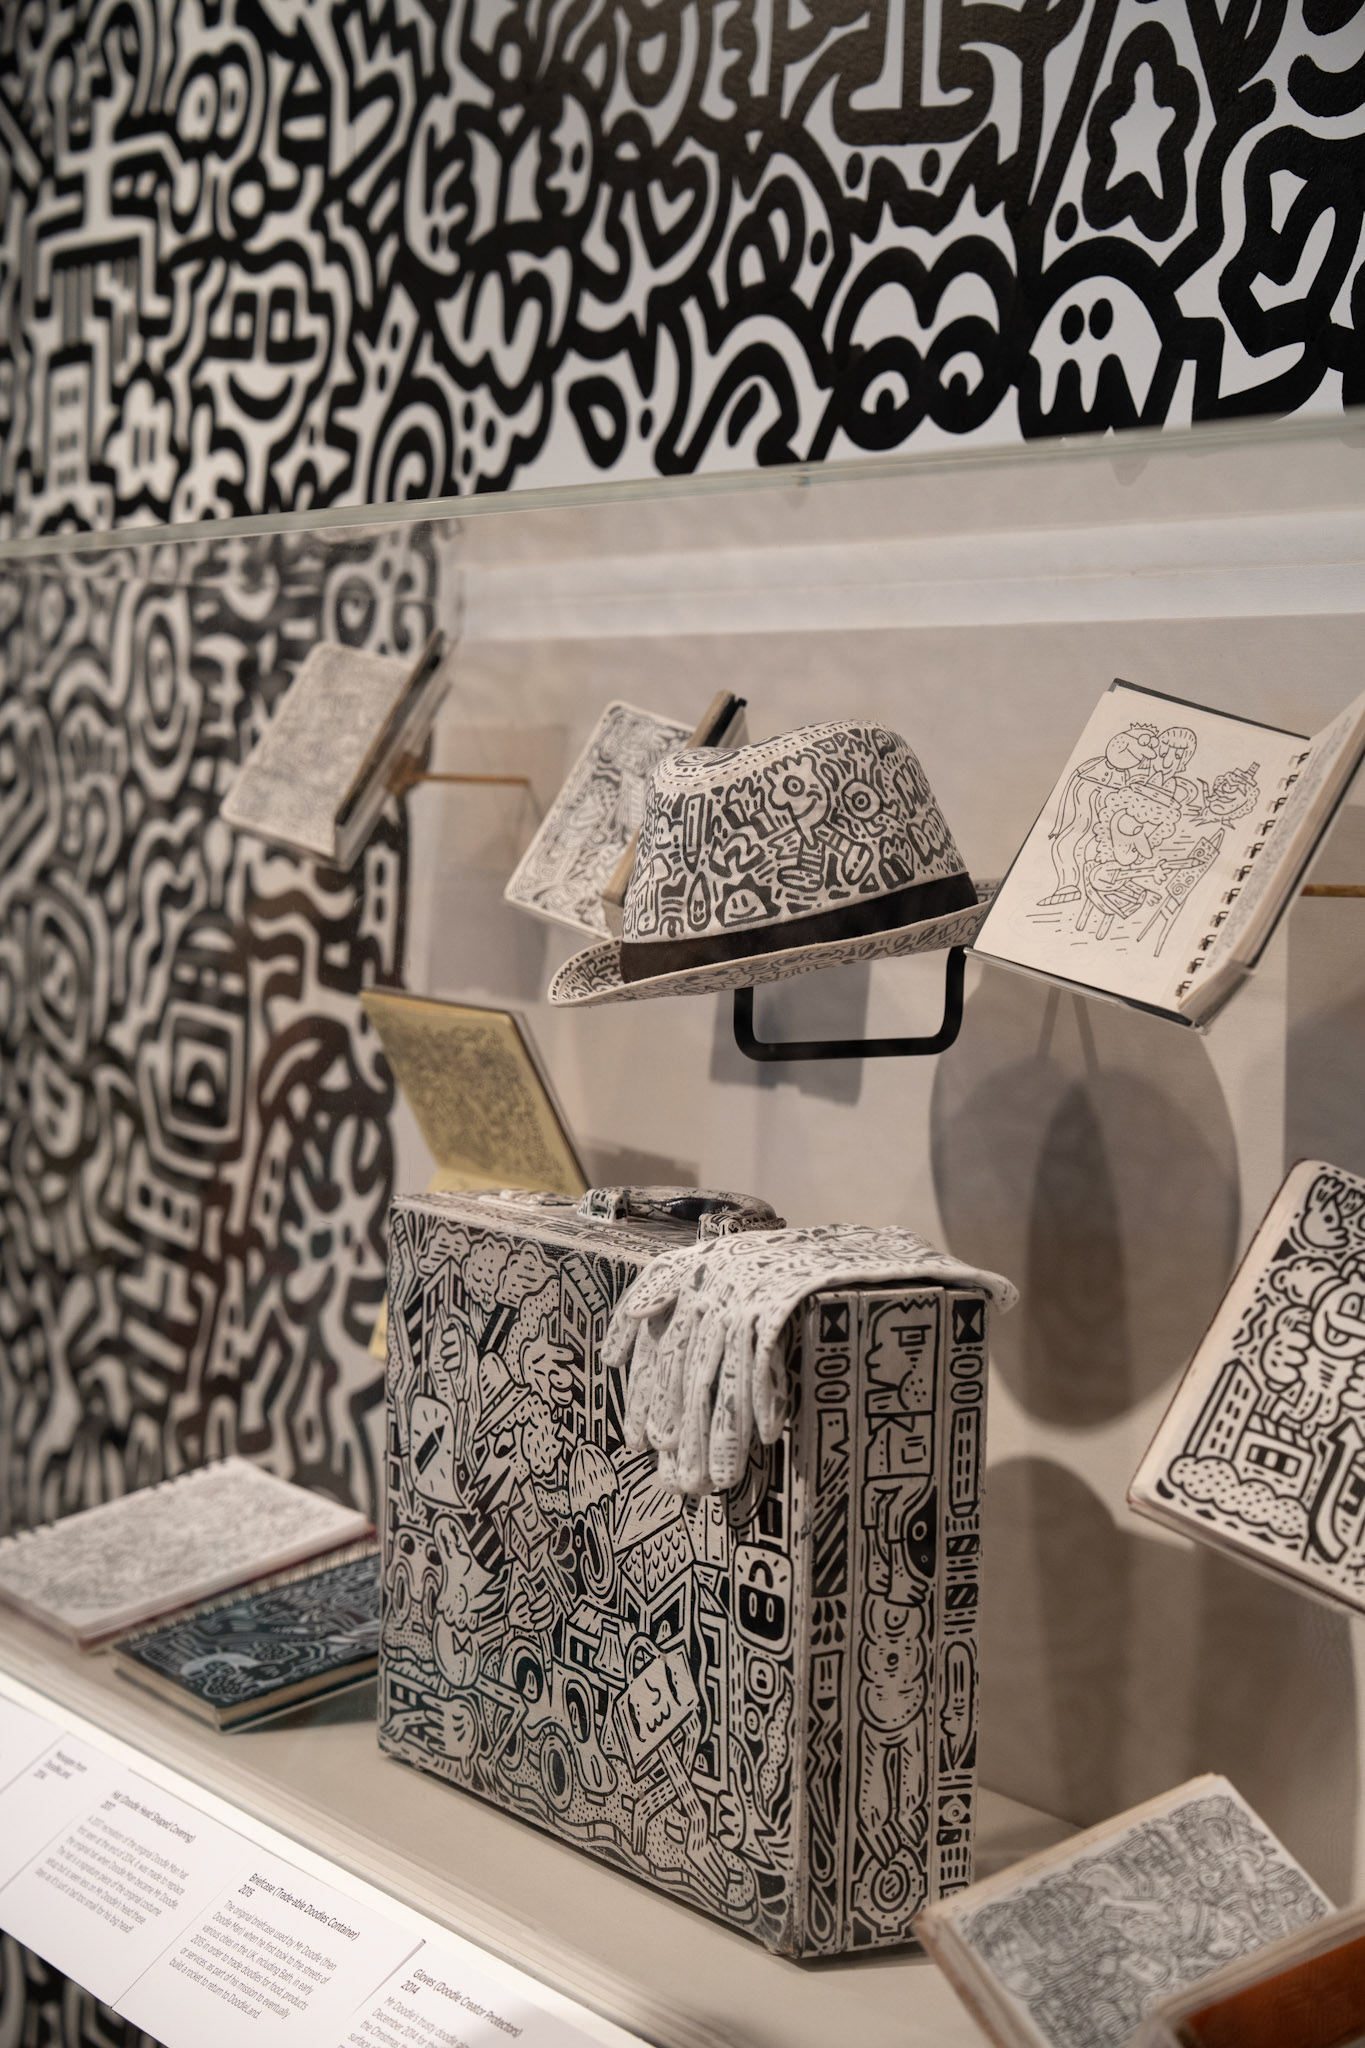 Messages from
DoodleLand
2014
Hat (Doodle Head Shaped Covering)
2017
A 2017 recreation of the original Doodle Man hat
first seen at the end of 2014. It was made to replace
the original hat when Doodle Man became Mr Doodle.
The hat is a signature piece of the original costume
Briefcase (Trade-able Doodles Container)
2015
The original briefcase used by Mr Doodle (then
Doodle Man) when he first took to the streets of
various cities in the UK, including Bath, in early
2015 in order to trade doodles for food, products
or services, as part of his mission to eventually
build a rocket to return to DoodleLand.
Gloves (Doodle Creator Protectors)
2014
Mr Doodle's trusty doodle
December 2014 for
the Christmas